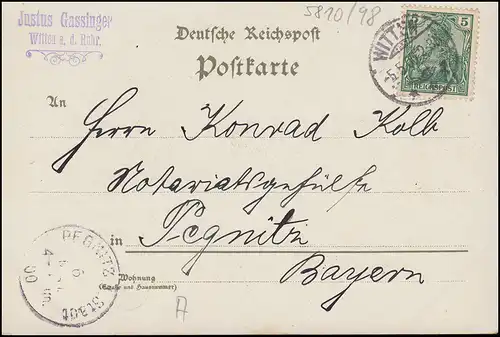 Justus Gassinger
Witten a. d. Ruhr.
5810/98
Deutsche Reichspost
Postkarte
WITTEN
5
REICHSPOST
An
Herrn Konrad Kolb
Notariatsgehülfe
in Pegnitz
Bayern
Wohnung
(Straße und Hausnummer)
PEGNITZ Stadt
A